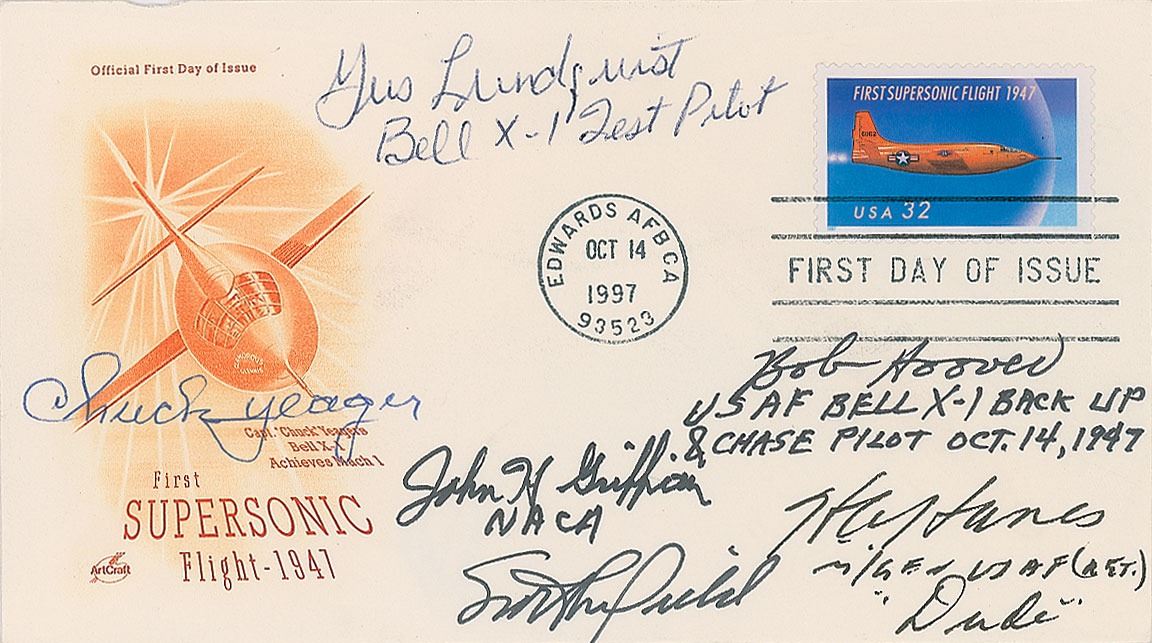 Official First Day of Issue
Gus Lundquist
Bell X-1 Test Pilot
FIRST SUPERSONIC FLIGHT 1947
6062
USA 32
EDWARDS AFB CA
OCT 14
1997
93523
FIRST DAY OF ISSUE
GLAMOROUS
GLENNIS
Chuck Yeager
Capt. "Chuck" Yeagers
Bell X-1
Achieves Mach 1
First
SUPERSONIC
Flight-1947
ArtCraft
Bob Hoover
USAF BELL X-1 BACK UP
& CHASE PILOT OCT. 14, 1947
John H Griffith
NACA
Scott Crossfield
M/GEN USAF (RET.)
"Dude"